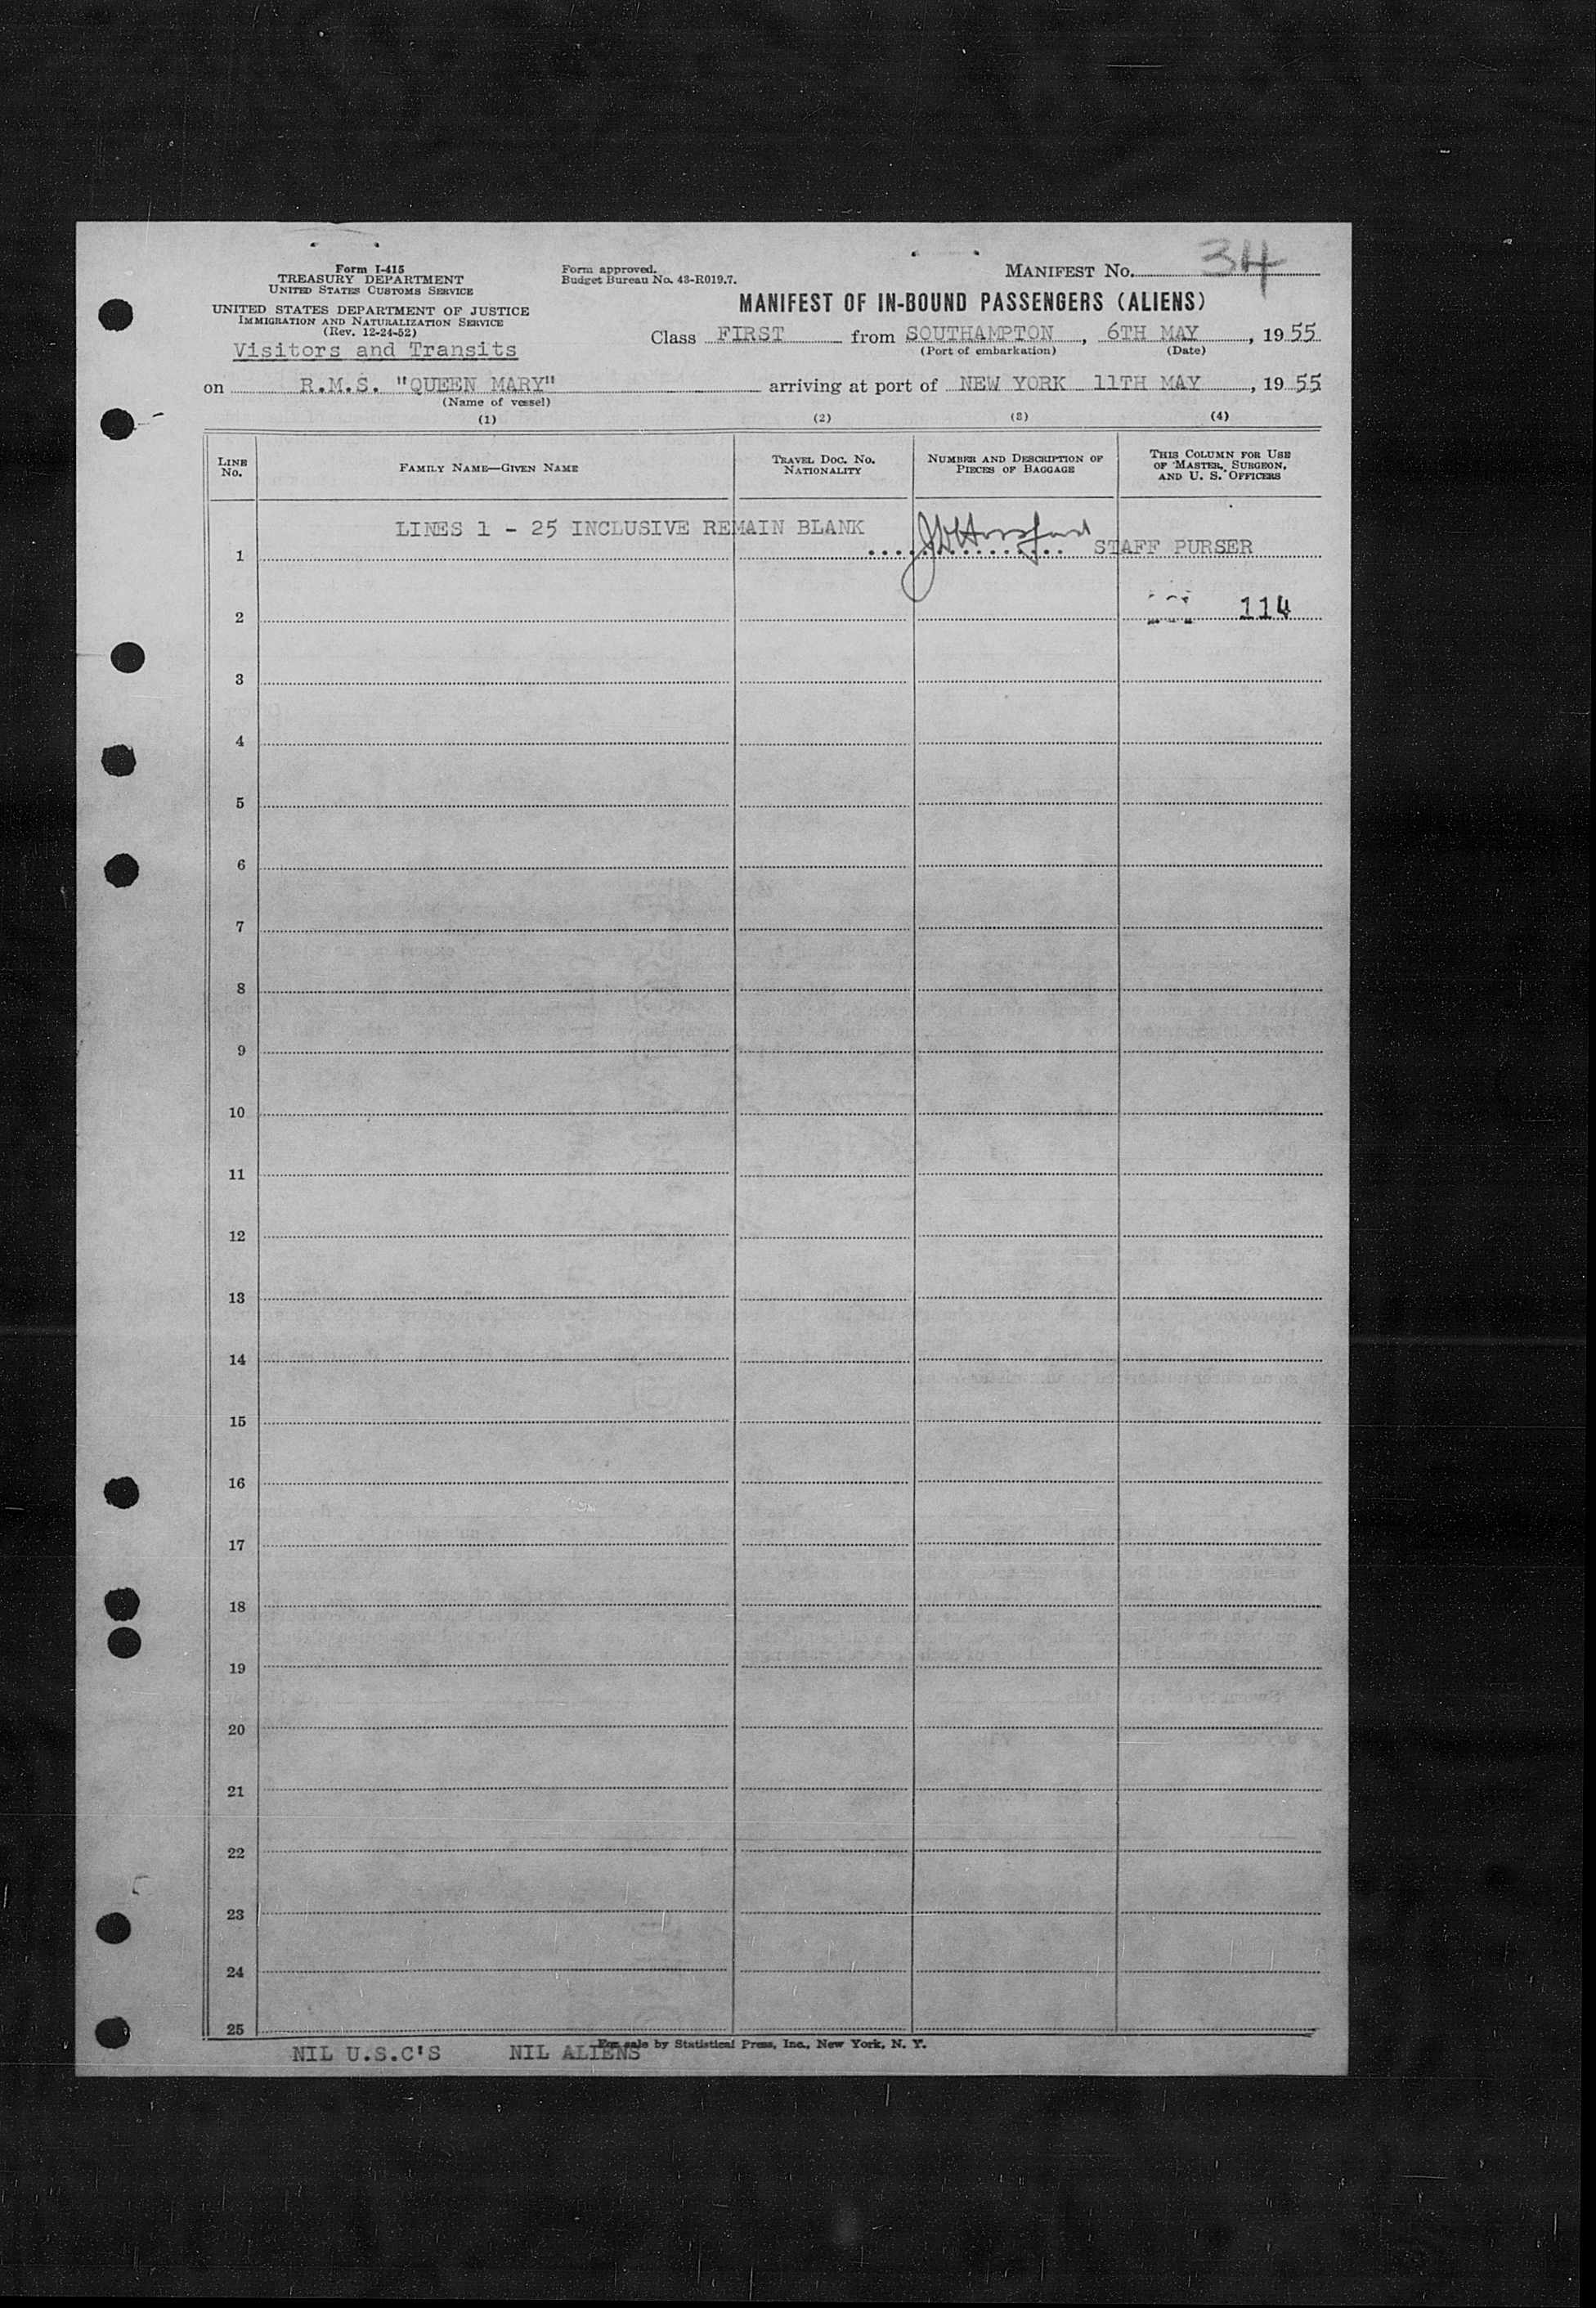 Form I-415
TREASURY DEPARTMENT
UNITED STATES CUSTOMS SERVICE
UNITED STATES DEPARTMENT OF JUSTICE
IMMIGRATION AND NATURALIZATION SERVICE
(Rev. 12-24-52)
Visitors and Transits
Form approved.
Budget Bureau No. 43-R019.7.
MANIFEST NO. 34
MANIFEST OF IN-BOUND PASSENGERS (ALIENS)
Class FIRST from SOUTHAMPTON, 6TH MAY, 1955
(Port of embarkation) (Date)
on R.M.S. "QUEEN MARY" arriving at port of NEW YORK 11TH MAY, 1955
(Name of vessel)
(1) (2) (3) (4)
LINE NO. FAMILY NAME—GIVEN NAME TRAVEL DOC. NO. NATIONALITY NUMBER AND DESCRIPTION OF PIECES OF BAGGAGE THIS COLUMN FOR USE OF MASTER, SURGEON, AND U. S. OFFICERS
LINES 1 - 25 INCLUSIVE REMAIN BLANK
1 STAFF PURSER
2 114
3
4
5
6
7
8
9
10
11
12
13
14
15
16
17
18
19
20
21
22
23
24
25
For sale by Statistical Press, Inc., New York, N. Y.
NIL U.S.C'S NIL ALIENS